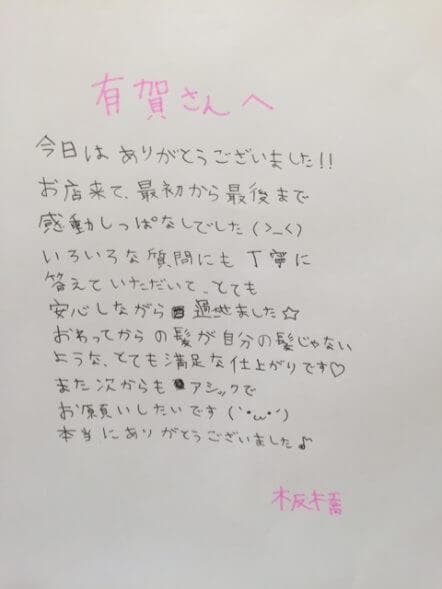 有賀さんへ
今日は ありがとうございました!!
お店来て、最初から最後まで
感動しっぱなしでした (>_<)
いろいろな質問にも 丁寧に
答えていただいて、とても
安心しながら 過せました☆
おわってからの髪が自分の髪じゃない
ような、とても満足な仕上がりです♡
また次からも アシックで
お願いしたいです (`•ω•´)
本当にありがとうございました♪